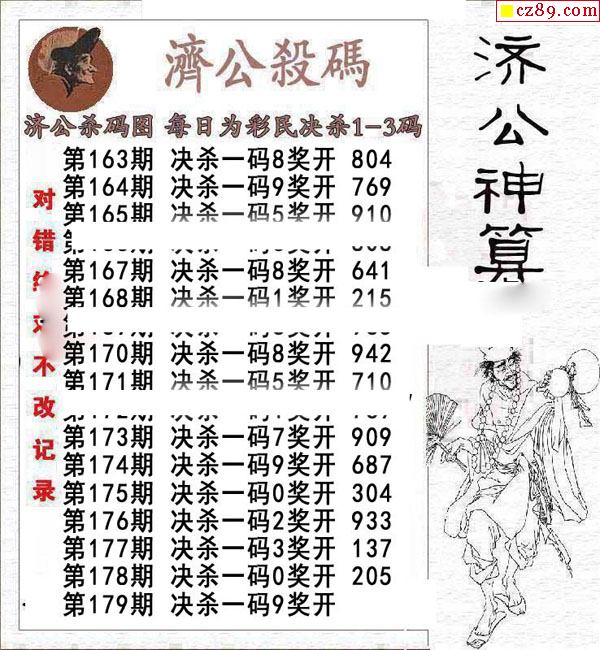 cz89.com
濟公殺碼
济公杀码图 每日为彩民决杀1-3码
第163期 决杀一码8奖开 804
第164期 决杀一码9奖开 769
第165期 决杀一码5奖开 910
第167期 决杀一码8奖开 641
第168期 决杀一码1奖开 215
第170期 决杀一码8奖开 942
第171期 决杀一码5奖开 710
第173期 决杀一码7奖开 909
第174期 决杀一码9奖开 687
第175期 决杀一码0奖开 304
第176期 决杀一码2奖开 933
第177期 决杀一码3奖开 137
第178期 决杀一码0奖开 205
第179期 决杀一码9奖开
对错 不改记录
济公神算